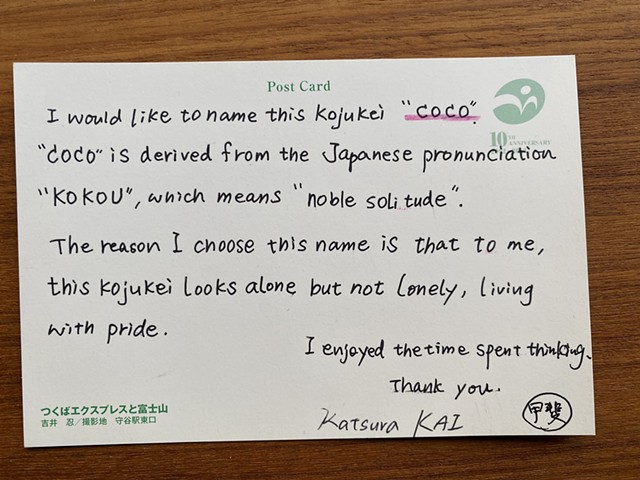 Post Card
I would like to name this Kojukei "COCO".
10TH ANNIVERSARY
"COCO" is derived from the Japanese pronunciation
"KOKOU", which means "noble solitude".
The reason I choose this name is that to me,
this Kojukei looks alone but not lonely, living
with pride.
I enjoyed the time spent thinking.
Thank you.
つくばエクスプレスと富士山
吉井 忍／撮影地 守谷駅東口
Katsura KAI
甲斐